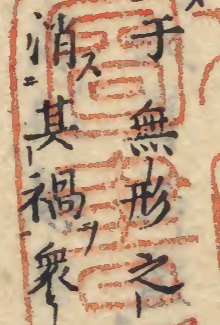 于無形之
消ス其禍ヲ衆